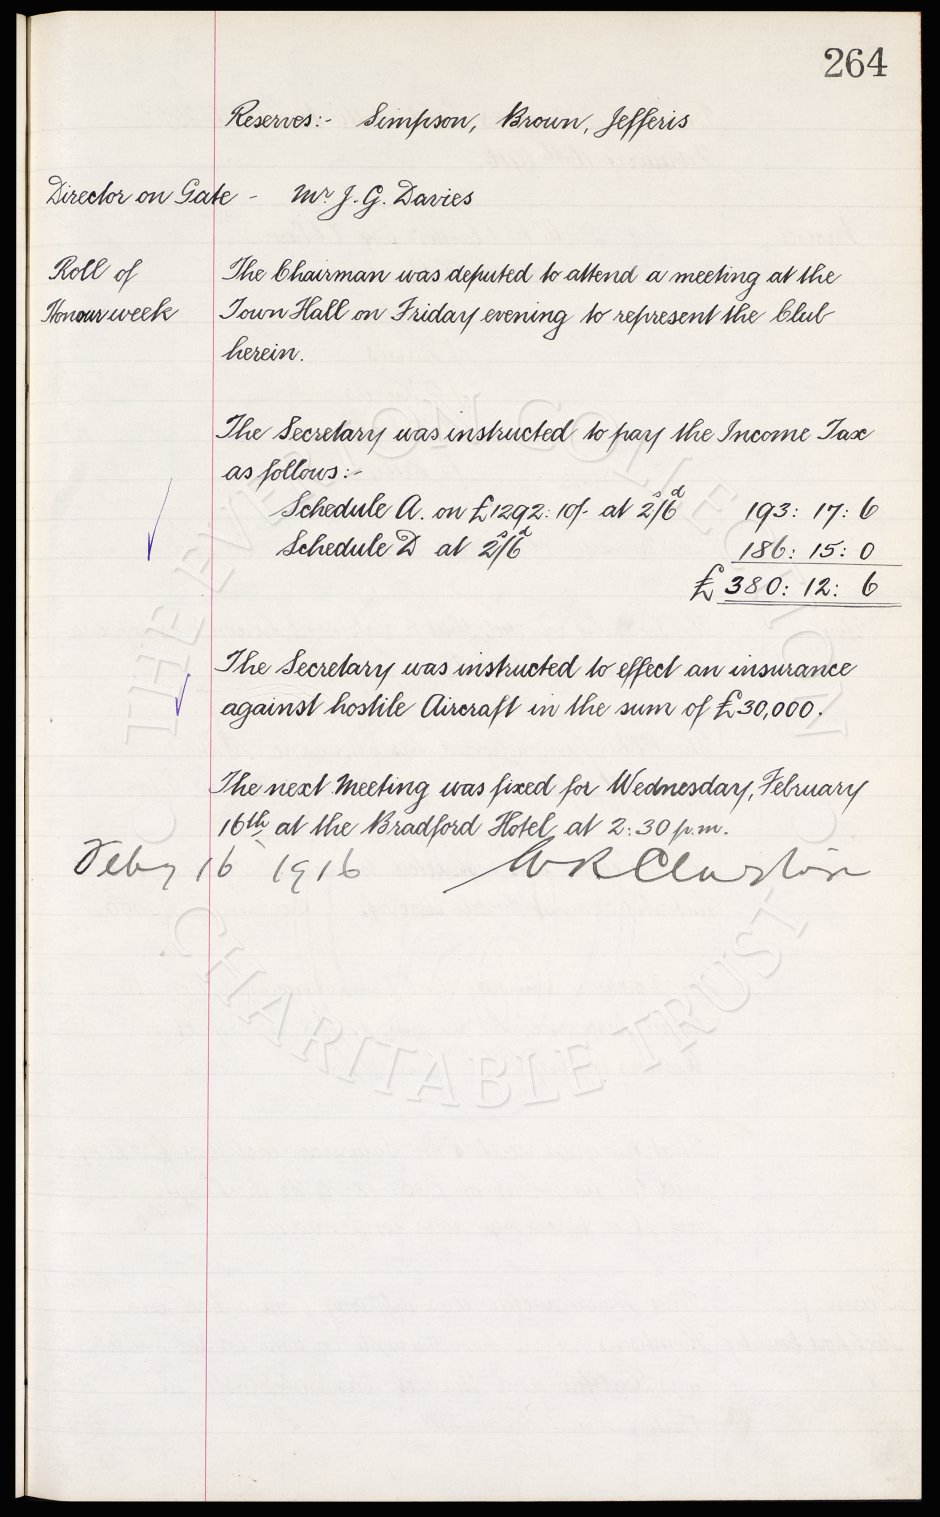 264
Reserves:- Simpson, Brown, Jefferis
Director on Gate - Mr J. G. Davies
Roll of
Honour week
The Chairman was deputed to attend a meeting at the
Town Hall on Friday evening to represent the Club
herein.
The Secretary was instructed to pay the Income Tax
as follows:-
Schedule A. on £1292:10/- at 2s/6d 193: 17: 6
Schedule D at 2s/6d 186: 15: 0
£380: 12: 6
The Secretary was instructed to effect an insurance
against hostile Aircraft in the sum of £30,000.
The next Meeting was fixed for Wednesday, February
16th at the Bradford Hotel at 2:30 p.m.
Feby 16 1916 W R Clayton
THE EVERTON COLLECTION
CHARITABLE TRUST